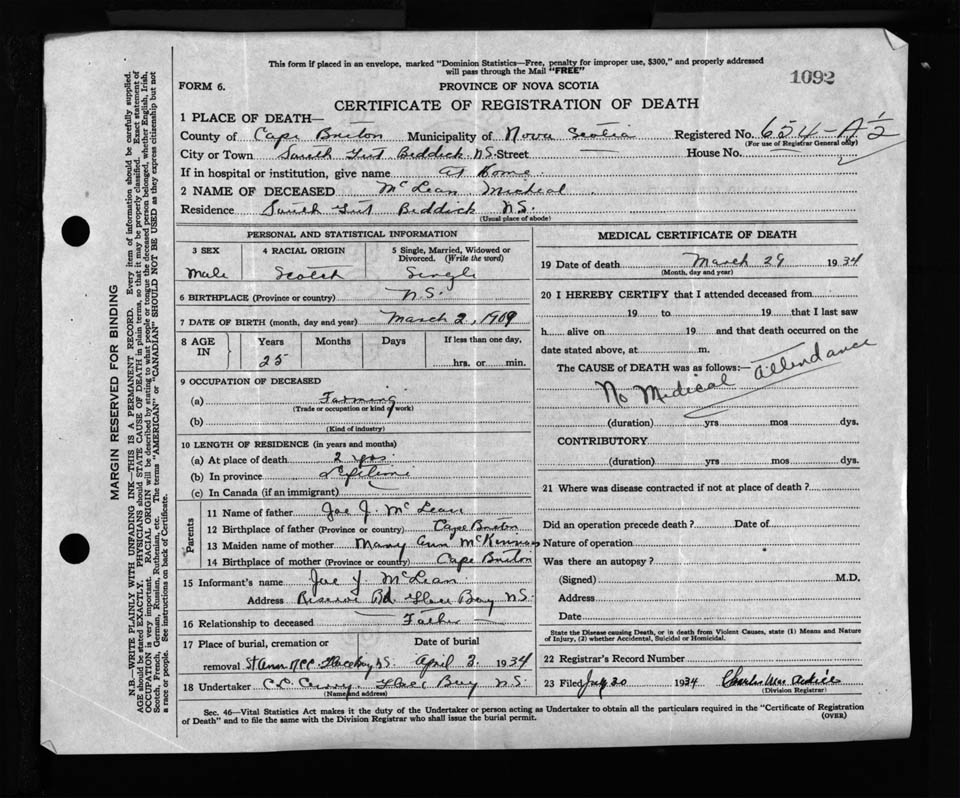 This form if placed in an envelope, marked "Dominion Statistics—Free, penalty for improper use, $300," and properly addressed
will pass through the Mail "FREE"
1092
FORM 6.
PROVINCE OF NOVA SCOTIA
CERTIFICATE OF REGISTRATION OF DEATH
1 PLACE OF DEATH—
County of Cape Breton Municipality of Nova Scotia Registered No. 654-A½
(For use of Registrar General only)
City or Town South Gut Beddick N.S. Street — House No.
If in hospital or institution, give name at Home.
2 NAME OF DECEASED McLean Micheal
Residence South Gut Beddick N.S.
(Usual place of abode)
PERSONAL AND STATISTICAL INFORMATION
3 SEX 4 RACIAL ORIGIN 5 Single, Married, Widowed or Divorced. (Write the word)
Male Scotch Single
6 BIRTHPLACE (Province or country) N.S.
7 DATE OF BIRTH (month, day and year) March 2, 1909
8 AGE IN Years Months Days If less than one day,
25 hrs. or min.
9 OCCUPATION OF DECEASED
(a) Farming
(Trade or occupation or kind of work)
(b)
(Kind of industry)
10 LENGTH OF RESIDENCE (in years and months)
(a) At place of death 2 yrs.
(b) In province Lifetime
(c) In Canada (if an immigrant) —
Parents
11 Name of father Joe J. McLean
12 Birthplace of father (Province or country) Cape Breton
13 Maiden name of mother Mary Ann McKinnon
14 Birthplace of mother (Province or country) Cape Breton
15 Informant's name Joe J. McLean
Address Reserve Rd. Glace Bay N.S.
16 Relationship to deceased Father
17 Place of burial, cremation or removal Date of burial
St Ann RCC Glace Bay N.S. April 2. 1934
18 Undertaker C.C. Curry, Glace Bay N.S.
(Name and address)
MEDICAL CERTIFICATE OF DEATH
19 Date of death March 29 1934
(Month, day and year)
20 I HEREBY CERTIFY that I attended deceased from
19 to 19 that I last saw
h alive on 19 and that death occurred on the
date stated above, at m.
The CAUSE of DEATH was as follows:—
No Medical attendance
(duration) yrs mos dys.
CONTRIBUTORY
(duration) yrs mos dys.
21 Where was disease contracted if not at place of death?
Did an operation precede death? Date of
Nature of operation
Was there an autopsy?
(Signed) M.D.
Address
Date
State the Disease causing Death, or in death from Violent Causes, state (1) Means and Nature
of Injury, (2) whether Accidental, Suicidal or Homicidal.
22 Registrar's Record Number
23 Filed 20 1934 Charles
(Division Registrar)
Sec. 46—Vital Statistics Act makes it the duty of the Undertaker or person acting as Undertaker to obtain all the particulars required in the "Certificate of Registration
of Death" and to file the same with the Division Registrar who shall issue the burial permit.
(OVER)
MARGIN RESERVED FOR BINDING
N.B.—WRITE PLAINLY WITH UNFADING INK—THIS IS A PERMANENT RECORD. Every item of information should be carefully supplied.
AGE should be stated EXACTLY. PHYSICIANS should STATE CAUSE OF DEATH in plain terms, so that it may be properly classified. Exact statement of
OCCUPATION is very important. RACIAL ORIGIN will be described by stating to what people or tongue the deceased person belonged, whether English, Irish,
Scotch, French, German, Russian, Ruthenian, etc. The terms "AMERICAN" or "CANADIAN" SHOULD NOT BE USED as they express citizenship but not
a race or people. See instructions on back of Certificate.